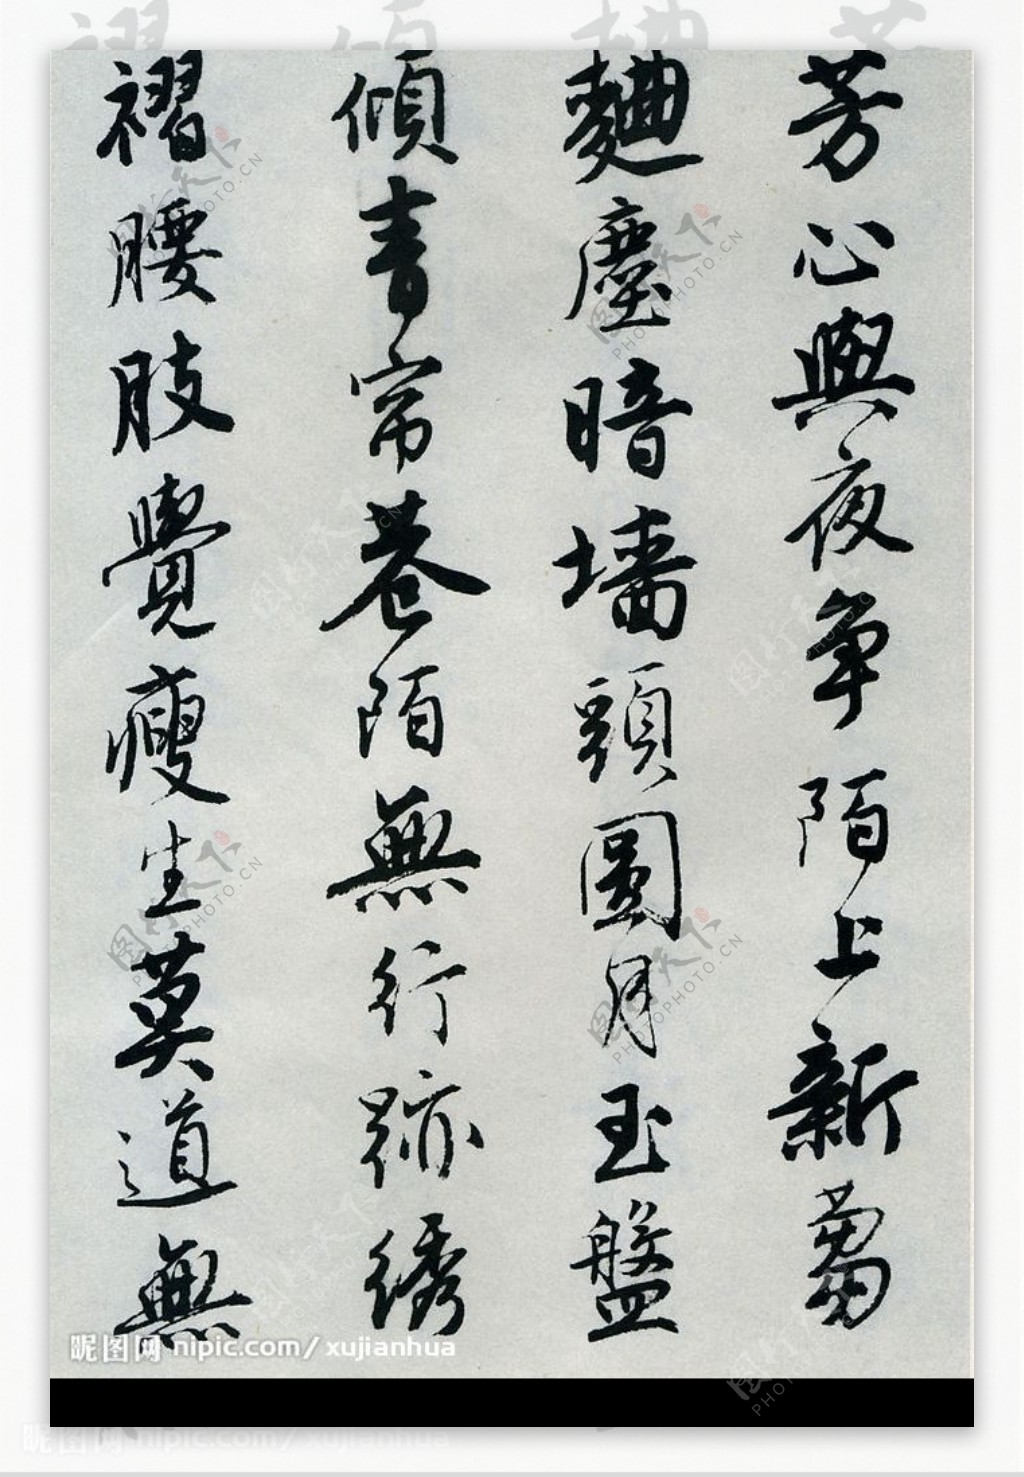 芳心與夜争陌上新蒭
麯塵暗墻頭圓月玉盤
傾青帘巷陌無行跡綉
褶腰肢覺瘦生莫道無
昵图网 nipic.com/xujianhua